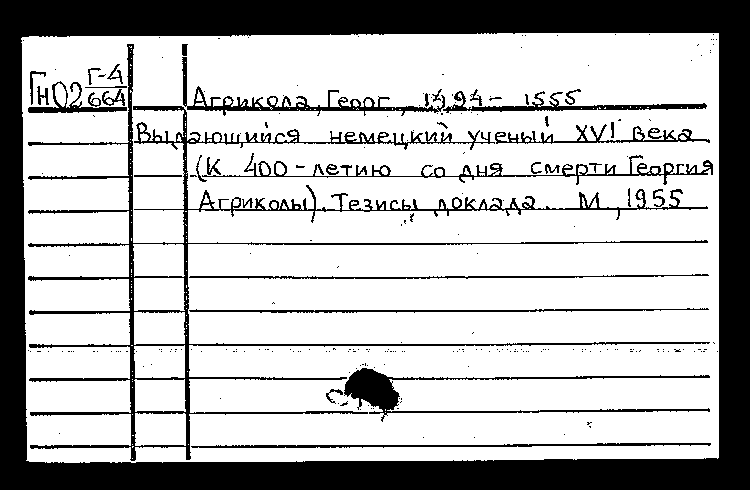 Гн02 Г-4
664
Агрикола, Георг, 1494 - 1555
Выдающийся немецкий ученый XVI века
(К 400-летию со дня смерти Георгия
Агриколы). Тезисы доклада. М, 1955